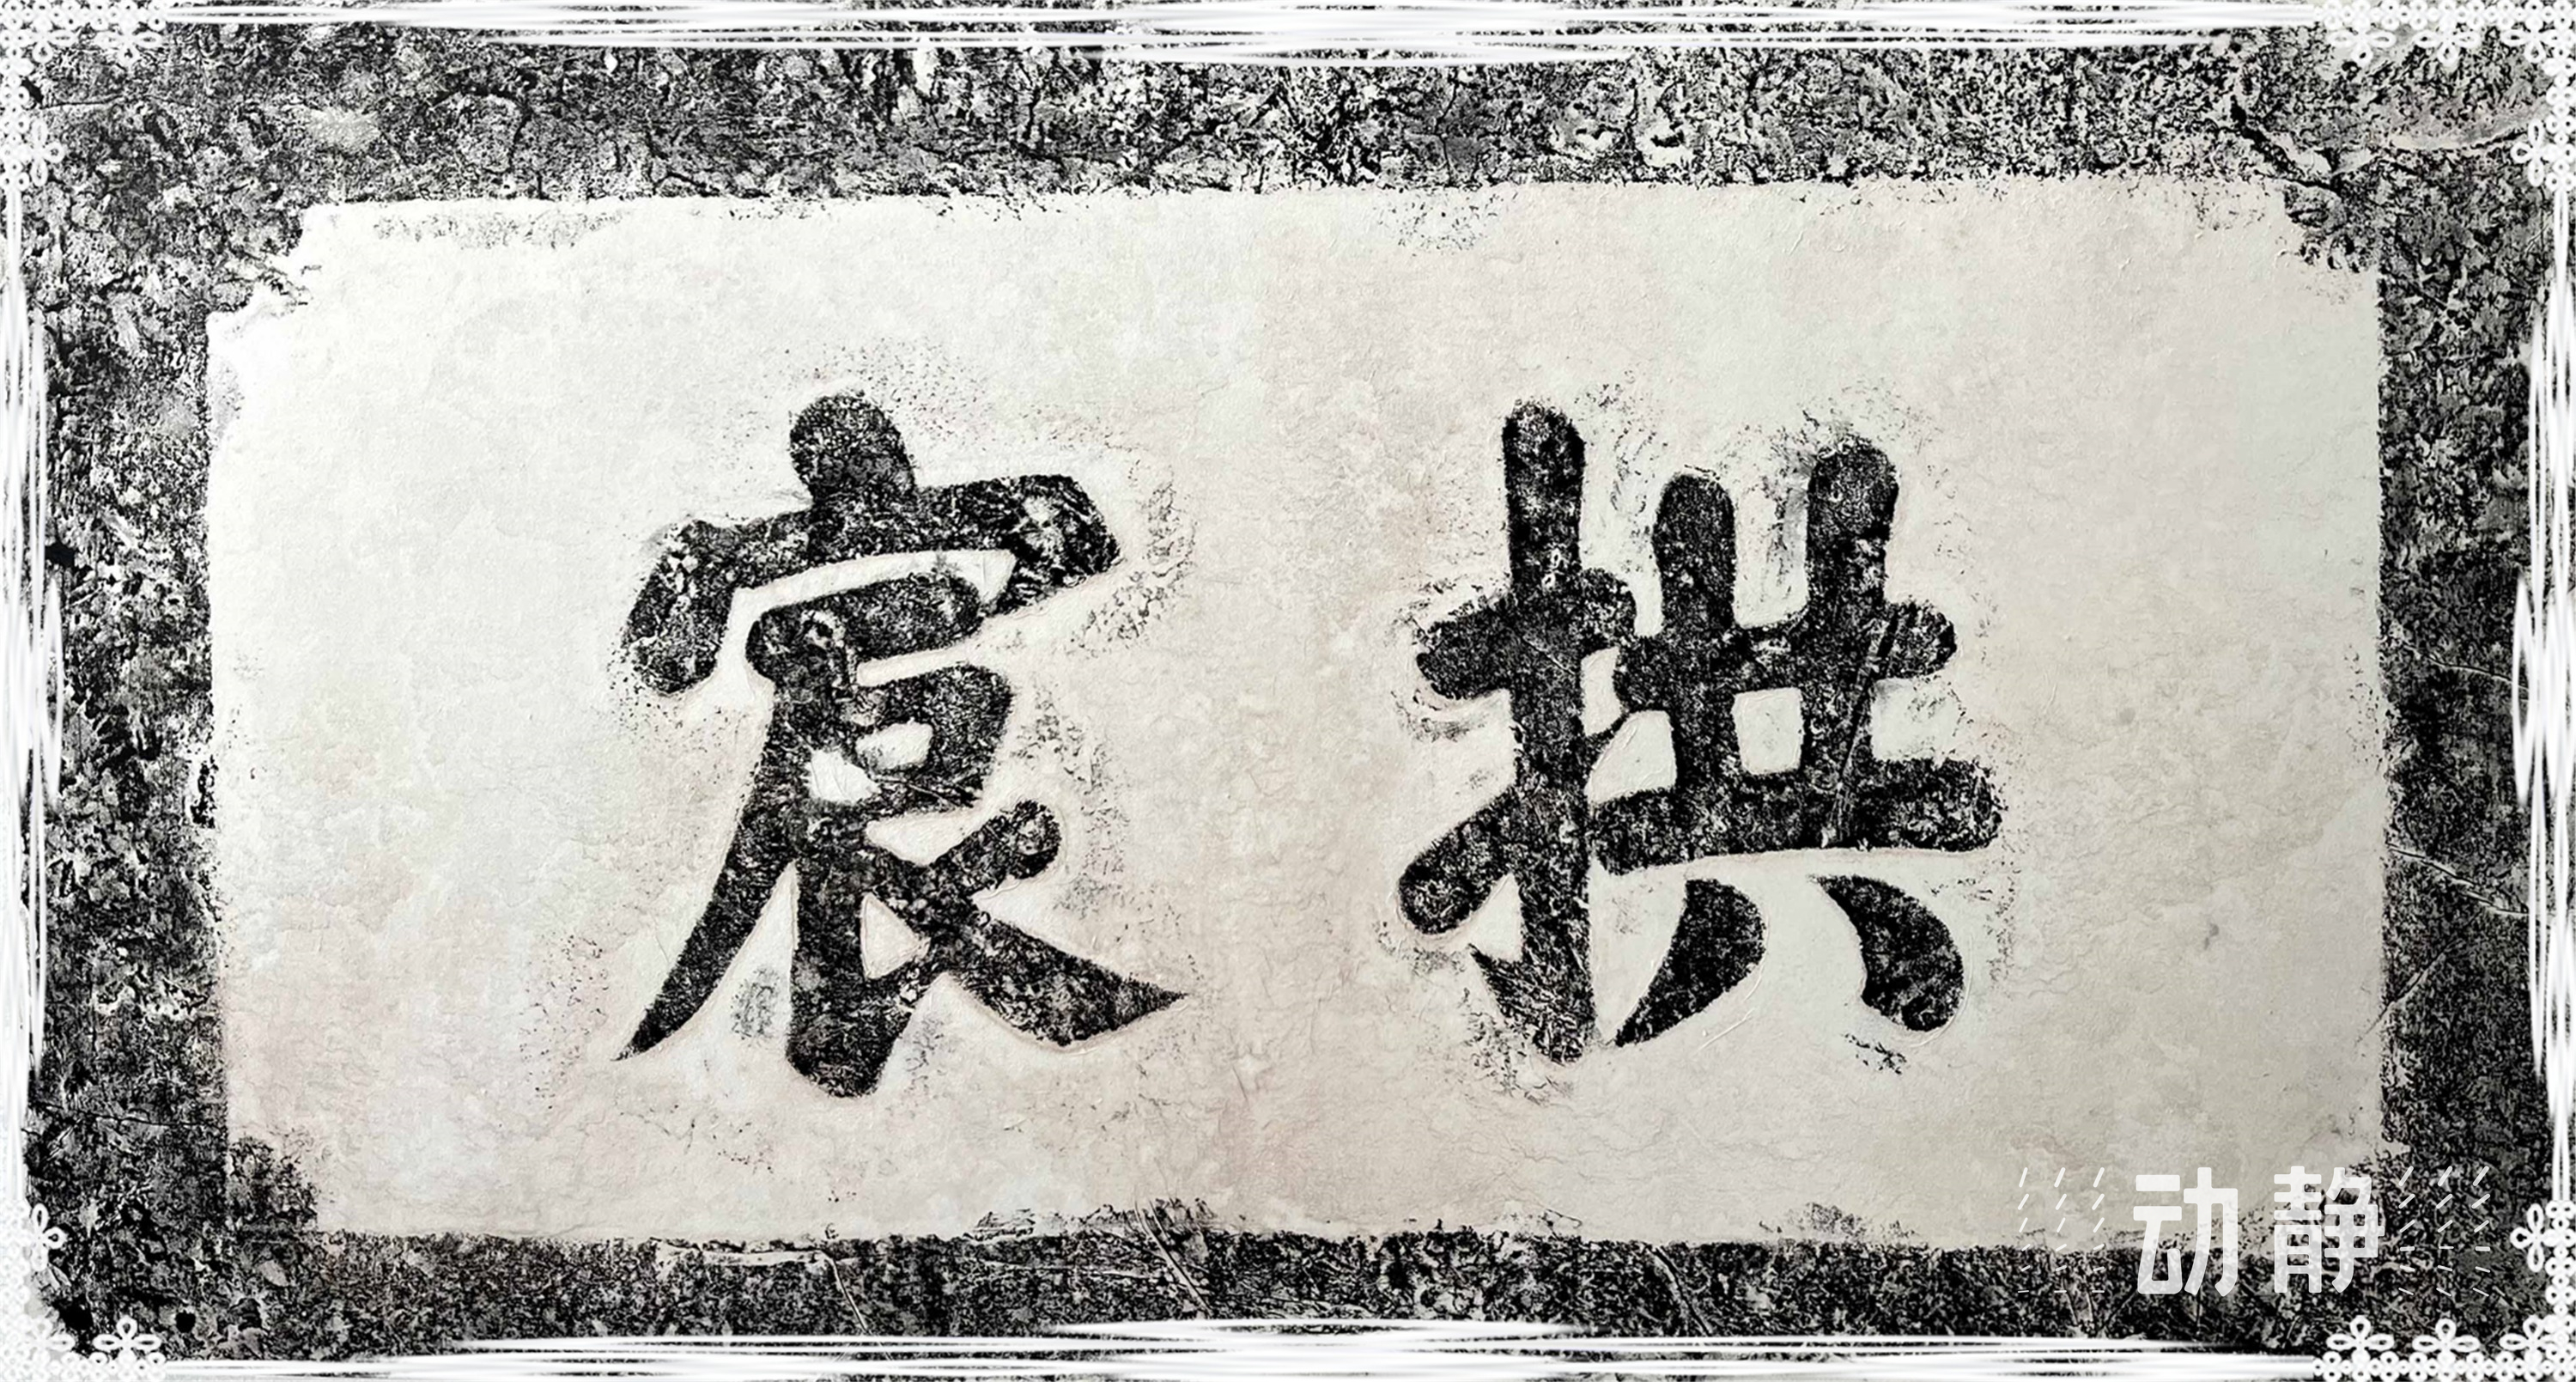 拱宸
动静